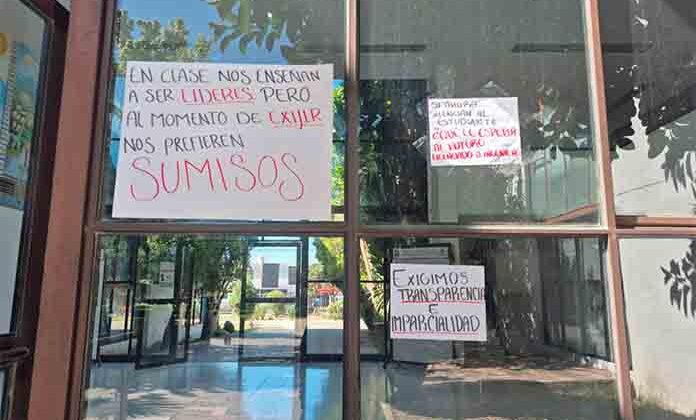 EN CLASE NOS ENSEÑAN
A SER LIDERES PERO
AL MOMENTO DE EXIJIR
NOS PREFIEREN
SUMISOS
SI AHORA
AL
ESTUDIANTE
QUE LE ESPERA
AL FUTURO
LICENCIADO
EXIGIMOS
TRANSPARENCIA
E
IMPARCIALIDAD